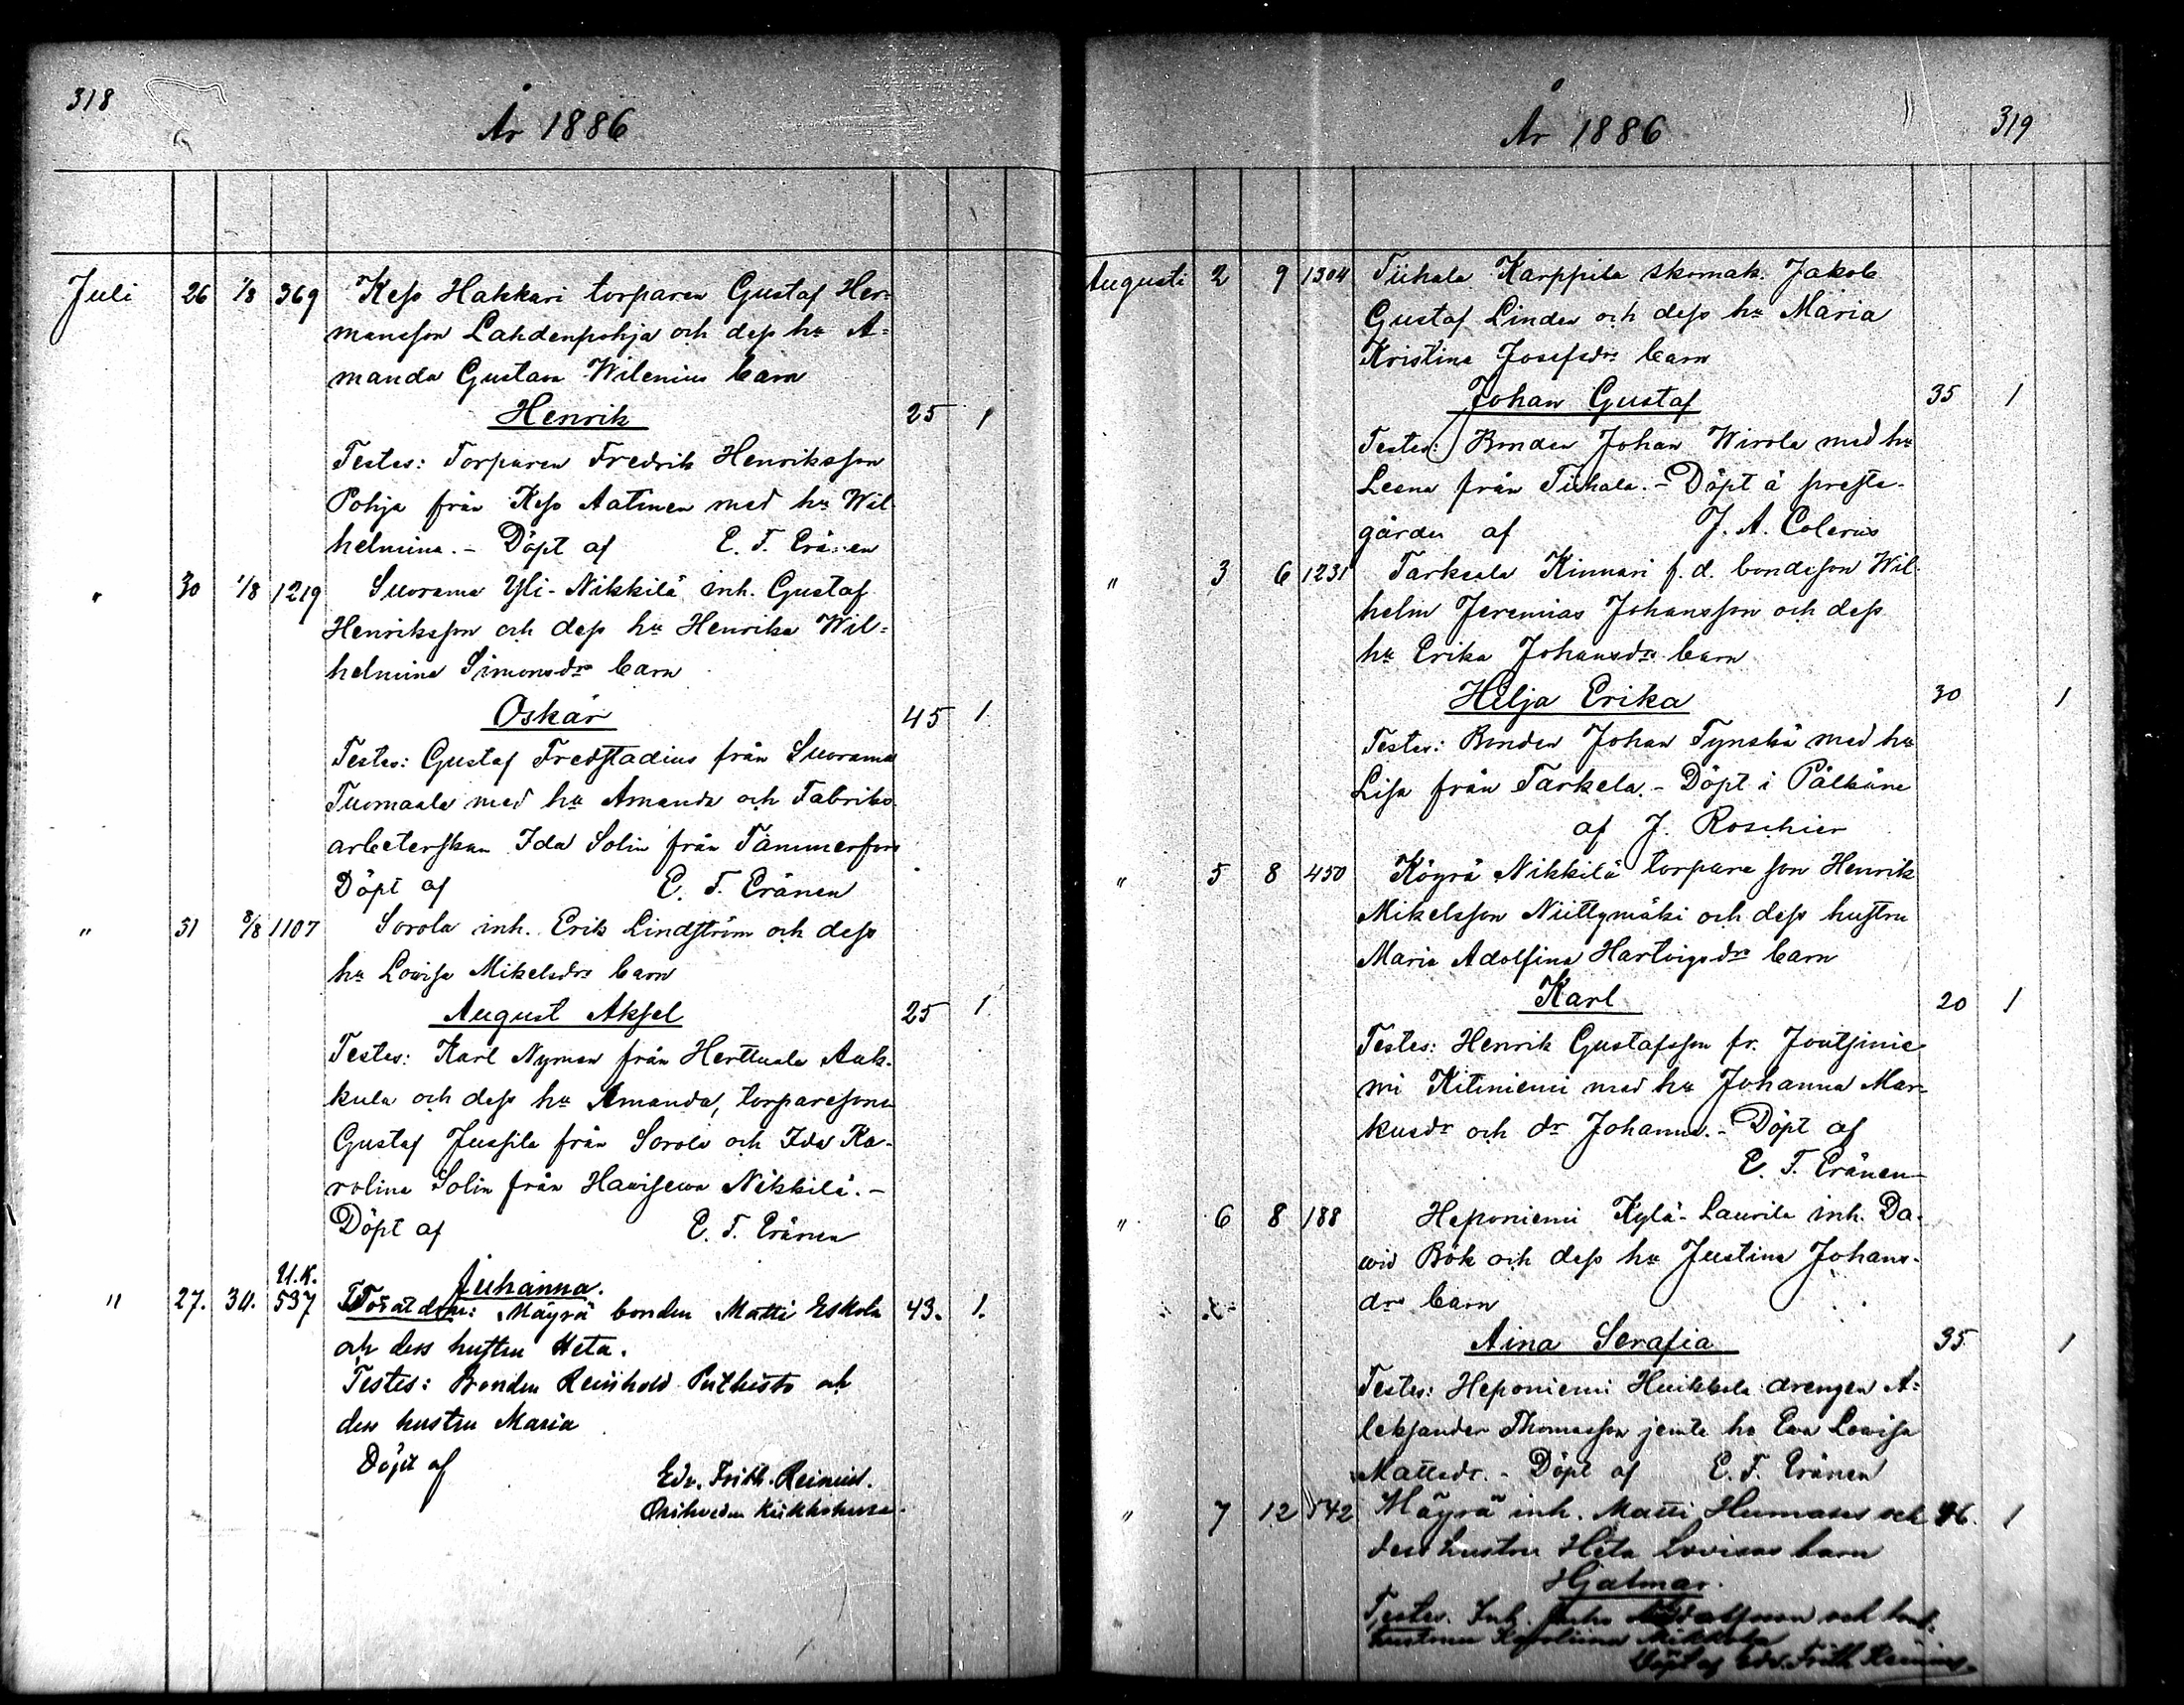 318
År 1886
Juli 26 1/8 369 Keso Hakkari torparen Gustaf Her=
mansson Lahdenpohja och dess hu A=
manda Gustava Wilenius barn
Henrik 25 1
Testes: Torparen Fredrik Henriksson
Pohja från Keso Aatinen med hu Wil
helmina. - Döpt af E. F. Eränen
" 30 1/8 1219 Suorama Yli-Nikkilä inh. Gustaf
Henriksson och dess hu Henrika Wil=
helmina Simonsdr barn
Oskar 45 1.
Testes: Gustaf Fredstadius från Suorama
Tuomaala med hu Amanda och Fabriks
arbeterskan Ida Solin från Tammerfors
Döpt af E. F. Eränen
" 31 8/8 1107 Sorola inh. Erik Lindström och dess
hu Lovisa Mikelsdr barn
August Aksel 25 1.
Testes: Karl Nyman från Herttuala Auk-
kula och dess hu Amanda, torparesonen
Gustaf Jussila från Sorola och Ida Ka-
rolina Solin från Haviseva Nikkilä. -
Döpt af E. F. Eränen
U.K.
Juhanna.
" 27. 30. 537 Föräldrar: Mäyrä bonden Matti Eskola 43. 1.
och dess hustru Heta.
Testes: Bonden Reinhold Puthisto och
dess hustru Maria
Döpt af
Edv. Frith. Reinius.
Orihveden kirkkoherra.
År 1886
319
Augusti 2 9 1304 Tiihala Karppila skomak. Jakob
Gustaf Linden och dess hu Maria
Kristina Josefsdr barn
Johan Gustaf 35 1
Testes: Bonden Johan Wirola med hu
Leena från Tiihala. - Döpt å preste-
gården af J. A. Colerus
" 3 6 1231 Tarksala Kinnari f. d. bondeson Wil-
helm Jeremias Johansson och dess
hu Erika Johansdr barn
Hilja Erika 30 1
Testes: Bonden Johan Tynskä med hu
Lisa från Tarkela. - Döpt i Pälkäne
af J. Roschier
" 5 8 450 Köyrä Nikkilä torpare son Henrik
Mikelsson Niittymäki och dess hustru
Maria Adolfina Hartvigsdr barn
Karl 20 1
Testes: Henrik Gustafsson fr. Joutsinie
mi Kitiniemi med hu Johanna Mar-
kusdr och dr Johanna. - Döpt af
E. F. Eränen
" 6 8 188 Heponiemi Kylä-Laurila inh. Da-
vid Bök och dess hu Justina Johans-
dr barn
Aina Serafia 35 1
Testes: Heponiemi Huikkola drengen A-
leksander Thomasson jemte hu Eva Lovisa
Mattsdr. - Döpt af E. F. Eränen
" 7 12 542 Mäyrä inh. Matti Humalas och 46. 1
dess hustru Heta Lovisas barn
Hjalmar.
Testes. Inh. Juho och
hustrun Karoliina Mikkola
Döpt af Edv. Frith Reinius.